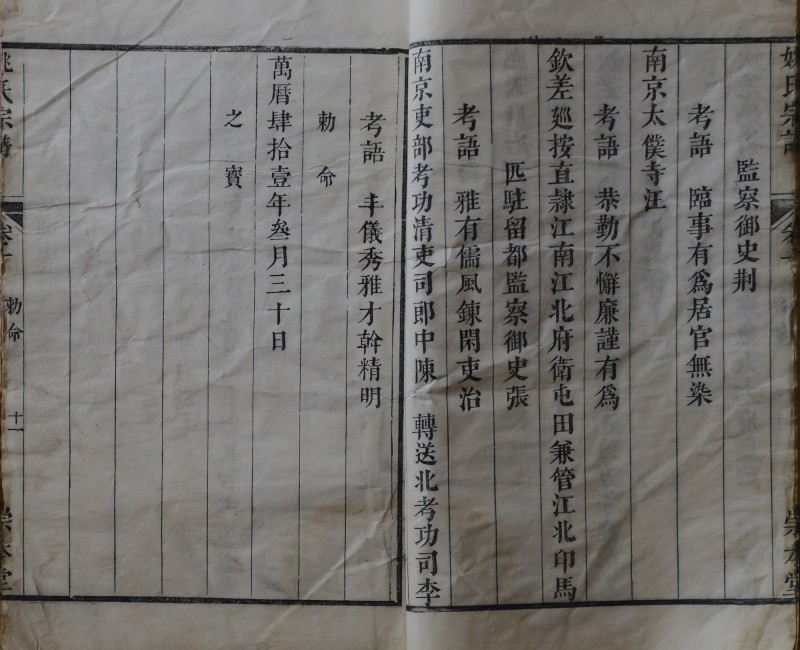 姚氏宗譜
卷一
崇本堂
監察御史荆
考語 臨事有爲居官無染
南京太僕寺江
考語 恭勤不懈廉謹有爲
欽差廵按直隷江南江北府衛屯田兼管江北印馬
匹駐留都監察御史張
考語 雅有儒風鍊閑吏治
南京吏部考功清吏司郎中陳 轉送北考功司李
考語 丰儀秀雅才幹精明
勅命
萬曆肆拾壹年叁月三十日
之寶
姚氏宗譜
卷一
勅命
十一
崇本堂